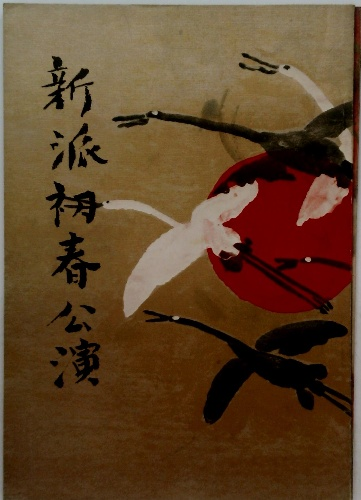 新派初春公演